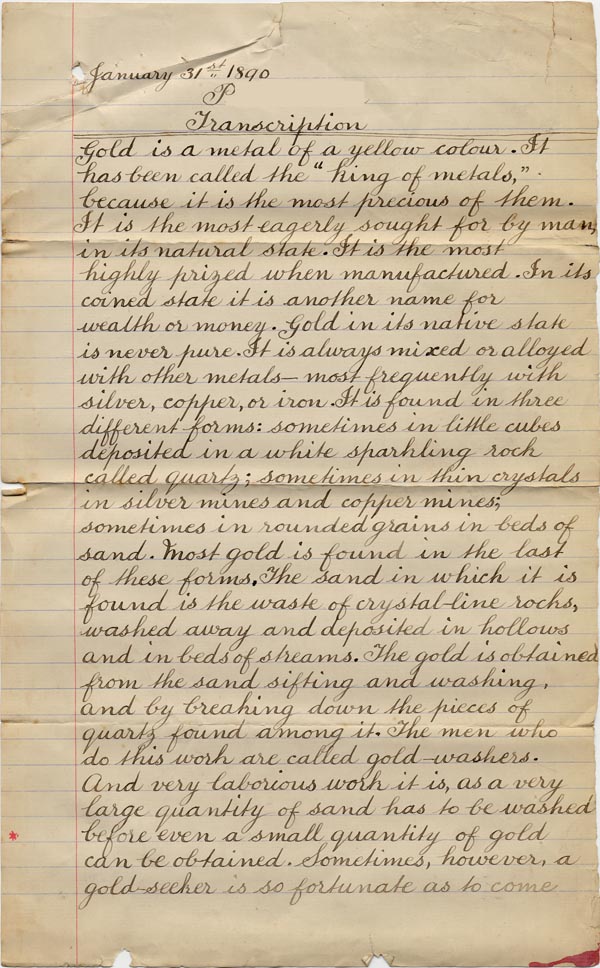 January 31st 1890
P
Transcription
Gold is a metal of a yellow colour. It
has been called the "king of metals,"
because it is the most precious of them.
It is the most eagerly sought for by man,
in its natural state. It is the most
highly prized when manufactured. In its
coined state it is another name for
wealth or money. Gold in its native state
is never pure. It is always mixed or alloyed
with other metals— most frequently with
silver, copper, or iron. It is found in three
different forms: sometimes in little cubes
deposited in a white sparkling rock
called quartz; sometimes in thin crystals
in silver mines and copper mines;
sometimes in rounded grains in beds of
sand. Most gold is found in the last
of these forms. The sand in which it is
found is the waste of crystal-line rocks,
washed away and deposited in hollows
and in beds of streams. The gold is obtained
from the sand sifting and washing,
and by breaking down the pieces of
quartz found among it. The men who
do this work are called gold-washers.
And very laborious work it is, as a very
large quantity of sand has to be washed
before even a small quantity of gold
can be obtained. Sometimes, however, a
gold-seeker is so fortunate as to come